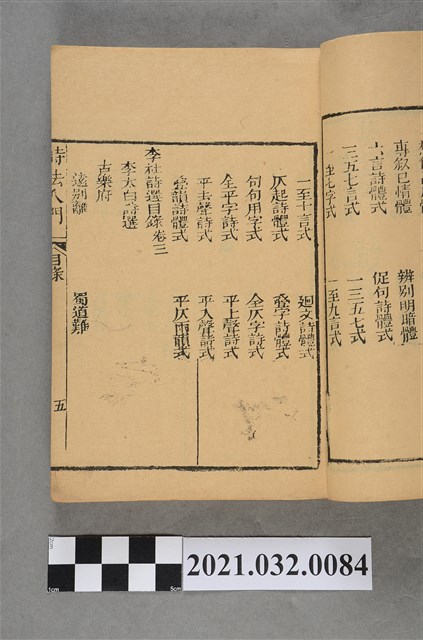 專敘己情體　辨別明暗體
六言詩體式　促句詩體式
三五七言式　一三五七式
一至七字式　一至九言式
一至十言式　廻文詩體式
仄起詩體式　疊字詩體式
句句用字式　全仄字詩式
全平字詩式　平上聲詩式
平去聲詩式　平入聲詩式
疊韻詩體式　平仄兩韻式
李杜詩選目錄卷三
李太白詩選
古樂府
遠別離　蜀道難
詩法入門　目錄　五
2cm
1cm
5cm
2021.032.0084